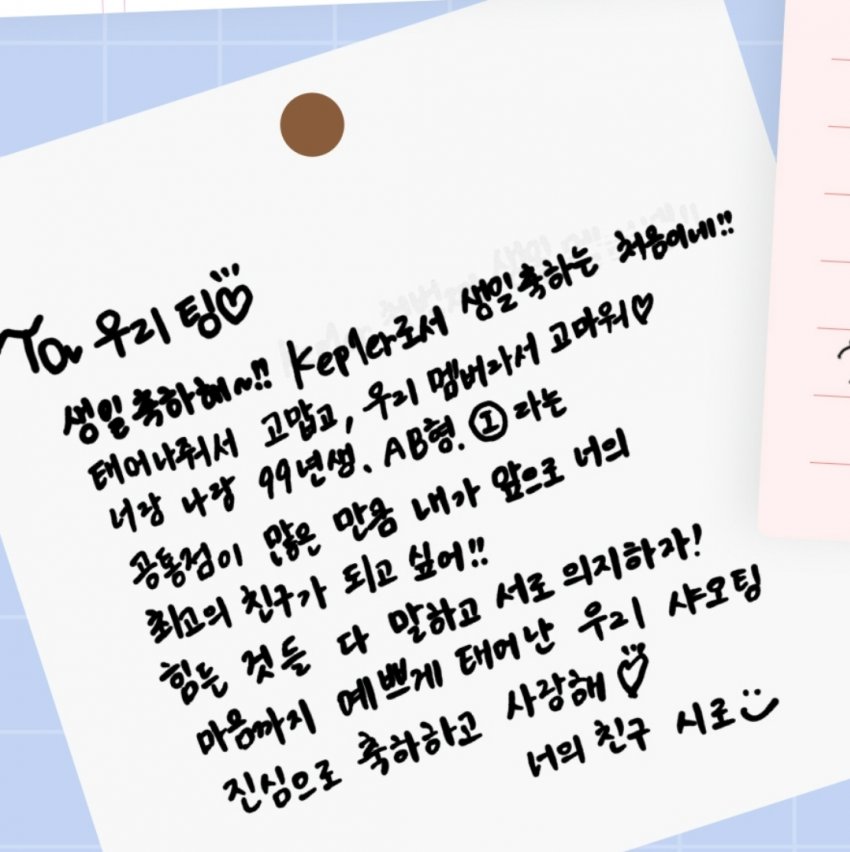 To. 우리 팅♡
생일축하해~!! Kep1er로서 생일축하는 처음이네!!
태어나줘서 고맙고, 우리 멤버라서 고마워♡
너랑 나랑 99년생. AB형. Ⓘ 라는
공통점이 많은 만큼 내가 앞으로 너의
최고의 친구가 되고 싶어!!
힘든 것들 다 말하고 서로 의지하자!
마음까지 예쁘게 태어난 우리 샤오팅
진심으로 축하하고 사랑해♡
너의 친구 시로